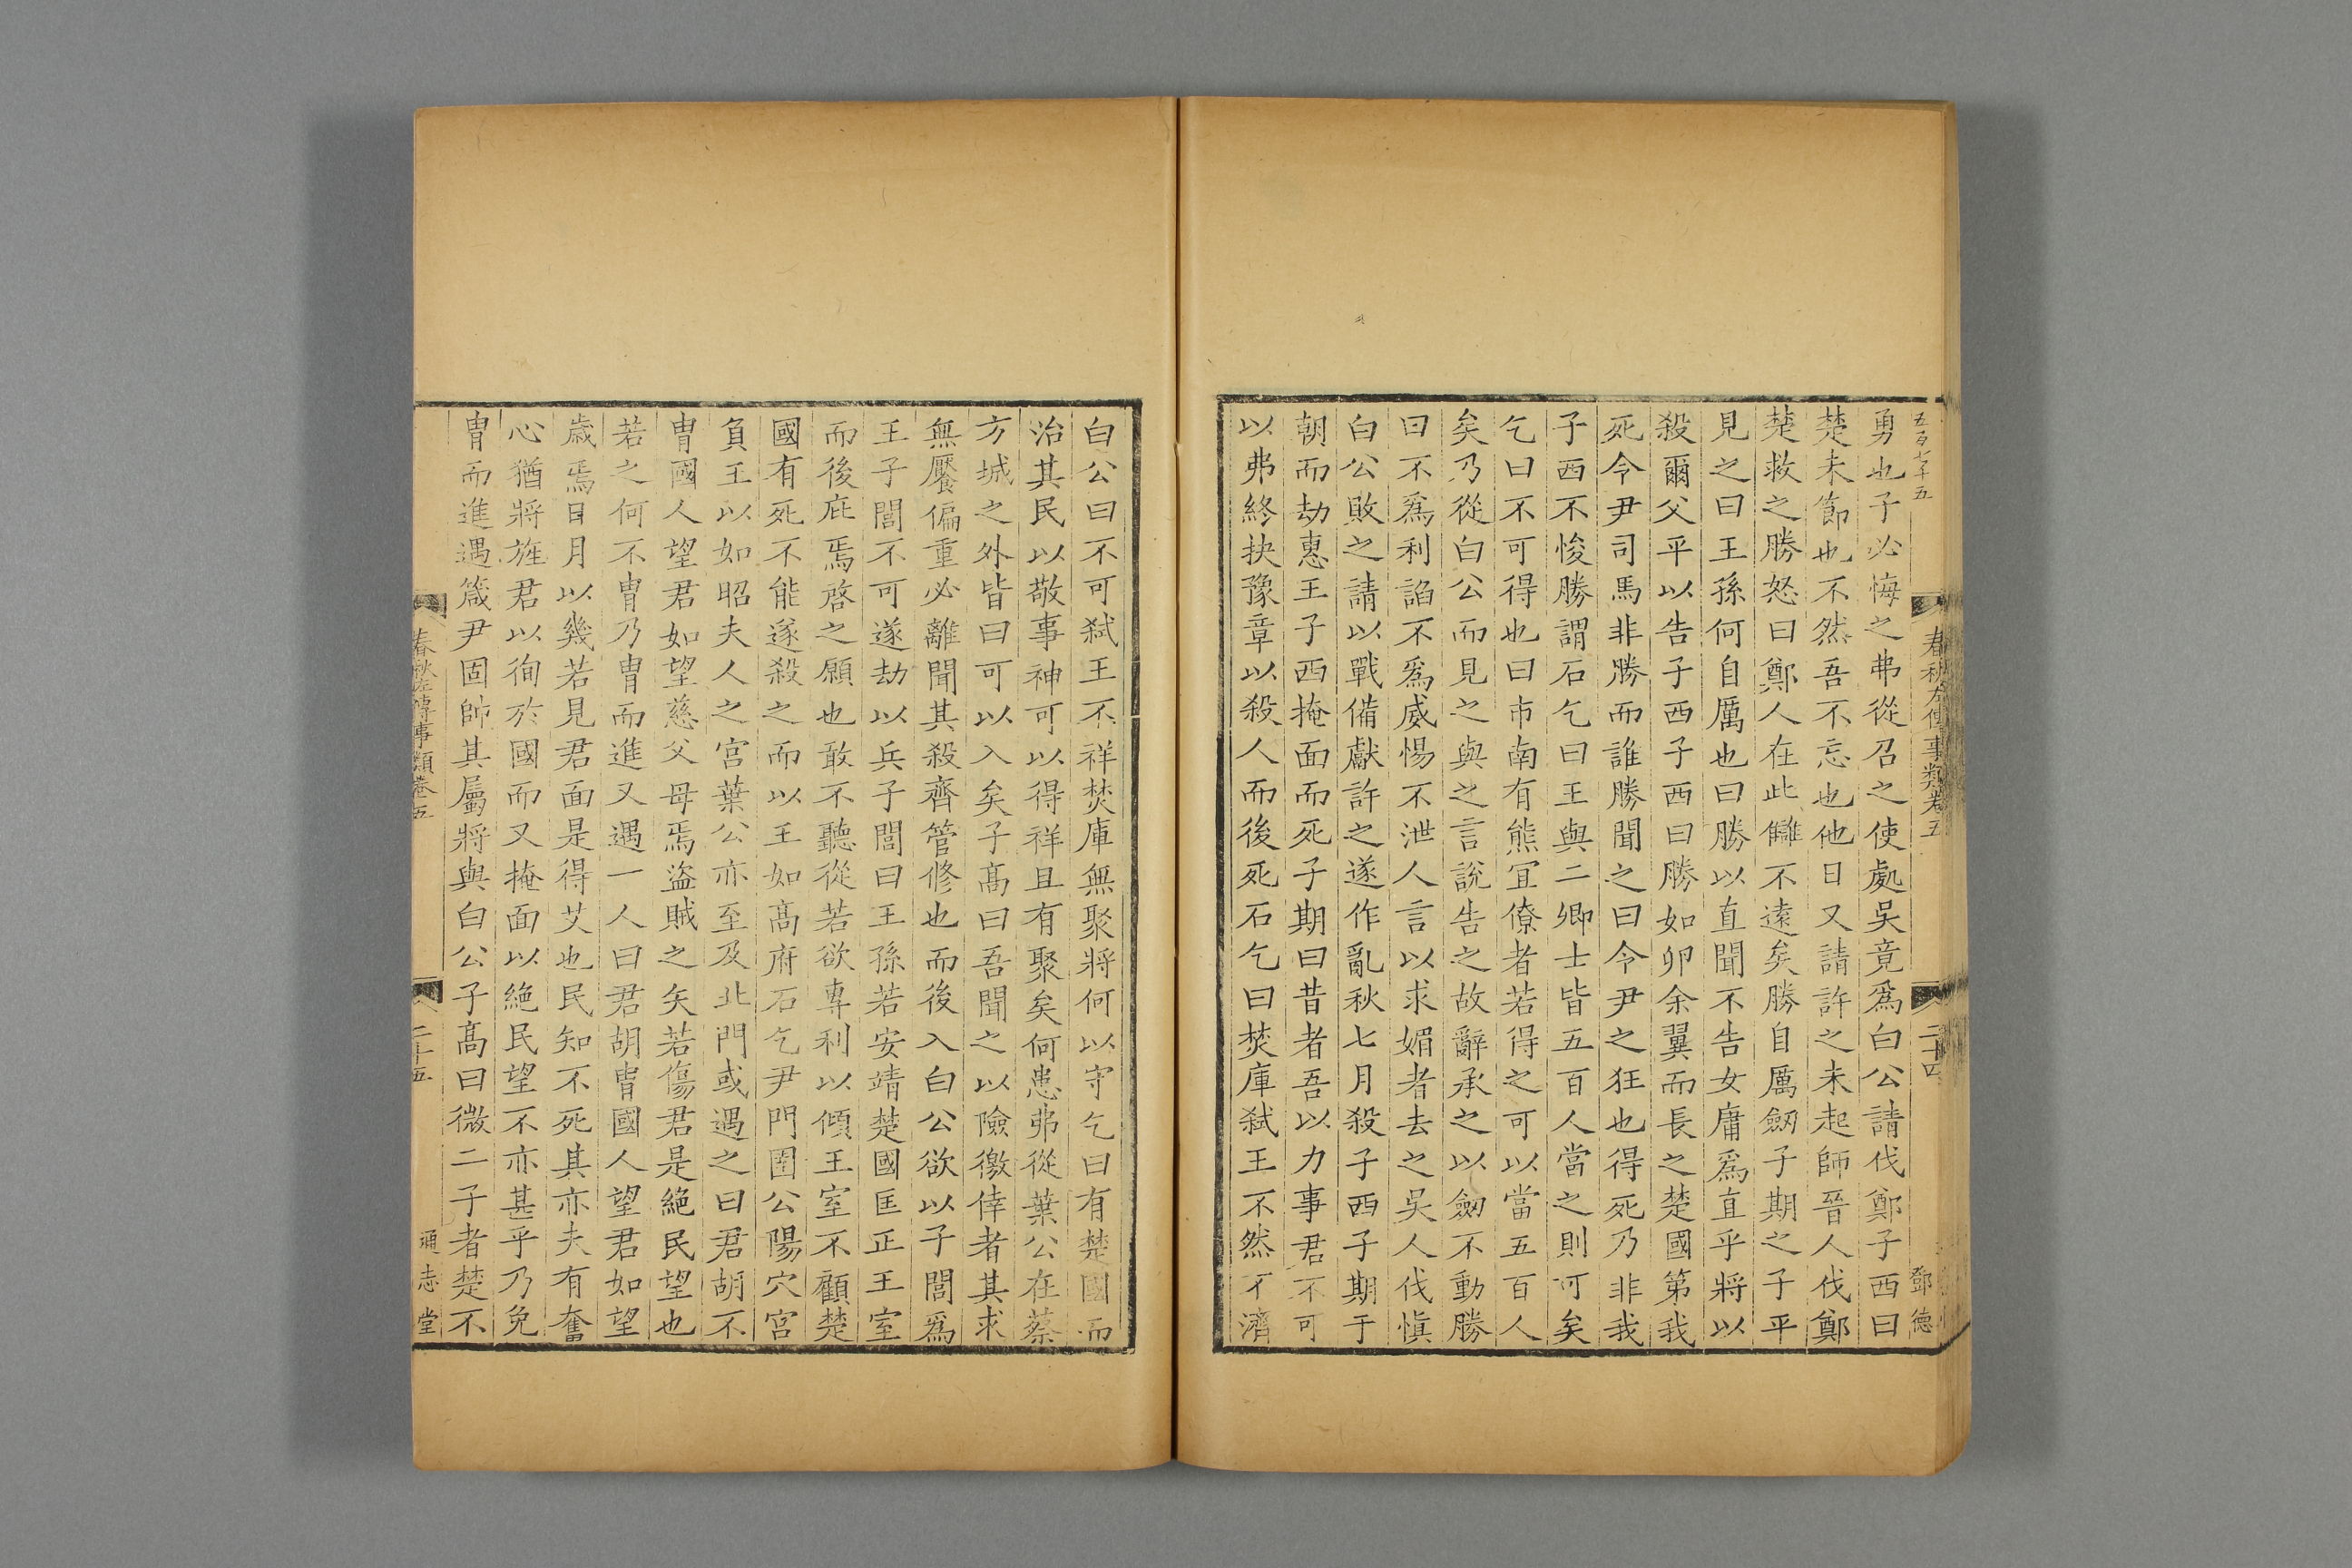 五百七十五
春秋左傳事類卷五
二十四
鄧德
勇也子必悔之弗從召之使處吳竟爲白公請伐鄭子西曰
楚未節也不然吾不忘也他日又請許之未起師晉人伐鄭
楚救之勝怒曰鄭人在此讎不遠矣勝自厲劒子期之子平
見之曰王孫何自厲也曰勝以直聞不告女庸爲直乎將以
殺爾父平以告子西子西曰勝如卵余翼而長之楚國第我
死令尹司馬非勝而誰勝聞之曰令尹之狂也得死乃非我
子西不悛勝謂石乞曰王與二卿士皆五百人當之則可矣
乞曰不可得也曰市南有熊宜僚者若得之可以當五百人
矣乃從白公而見之與之言說告之故辭承之以劒不動勝
曰不爲利諂不爲威惕不泄人言以求媚者去之吳人伐愼
白公敗之請以戰備獻許之遂作亂秋七月殺子西子期于
朝而劫惠王子西掩面而死子期曰昔者吾以力事君不可
以弗終抉豫章以殺人而後死石乞曰焚庫弑王不然不濟
白公曰不可弑王不祥焚庫無聚將何以守乞曰有楚國而
治其民以敬事神可以得祥且有聚矣何患弗從葉公在蔡
方城之外皆曰可以入矣子髙曰吾聞之以險徼倖者其求
無饜偏重必離聞其殺齊管修也而後入白公欲以子閭爲
王子閭不可遂劫以兵子閭曰王孫若安靖楚國匡正王室
而後庇焉啓之願也敢不聽從若欲專利以傾王室不顧楚
國有死不能遂殺之而以王如髙府石乞尹門圉公陽穴宮
負王以如昭夫人之宮葉公亦至及北門或遇之曰君胡不
胄國人望君如望慈父母焉盜賊之矢若傷君是絶民望也
若之何不胄乃胄而進又遇一人曰君胡胄國人望君如望
歲焉日月以幾若見君面是得艾也民知不死其亦夫有奮
心猶將旌君以徇於國而又掩面以絶民望不亦甚乎乃免
胄而進遇箴尹固帥其屬將與白公子髙曰微二子者楚不
春秋左傳事類卷五
二十五
通志堂